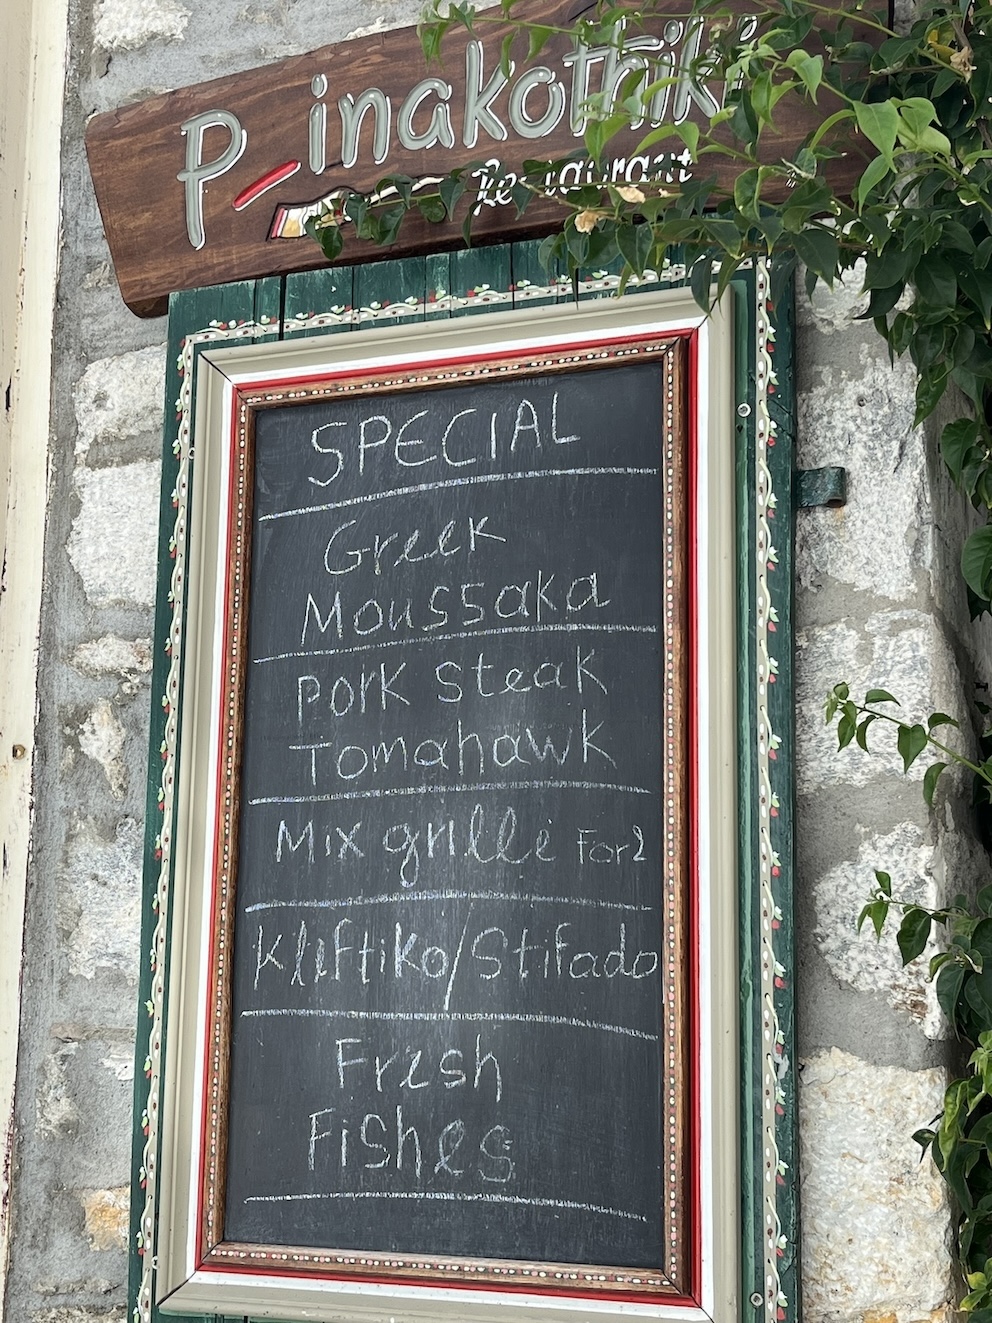 Pinakothiki
Restaurant
SPECIAL
Greek
Moussaka
Pork Steak
Tomahawk
Mix grille For2
Kleftiko/Stifado
Fresh
Fishes